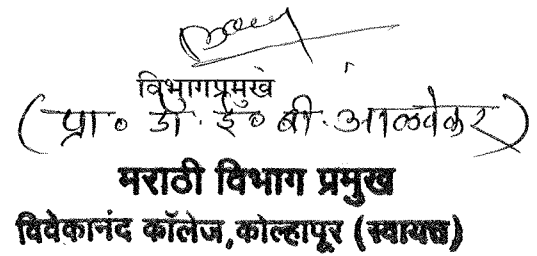 विभागप्रमुख
(प्रा० डॉ. ई० बी. आळवेकर)
मराठी विभाग प्रमुख
विवेकानंद कॉलेज,कोल्हापूर (स्वायत्त)